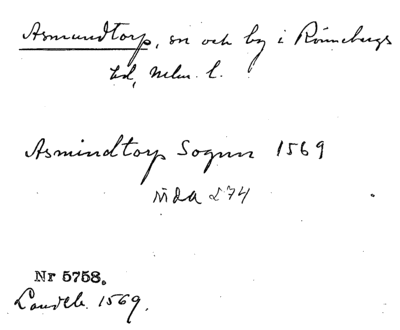 Asmundtorp, sn och by i Rönnebergs
hd, Malm. l.
Asmindtorp Sognn 1569
NDA 274
Nr 5758.
Landeb. 1569.